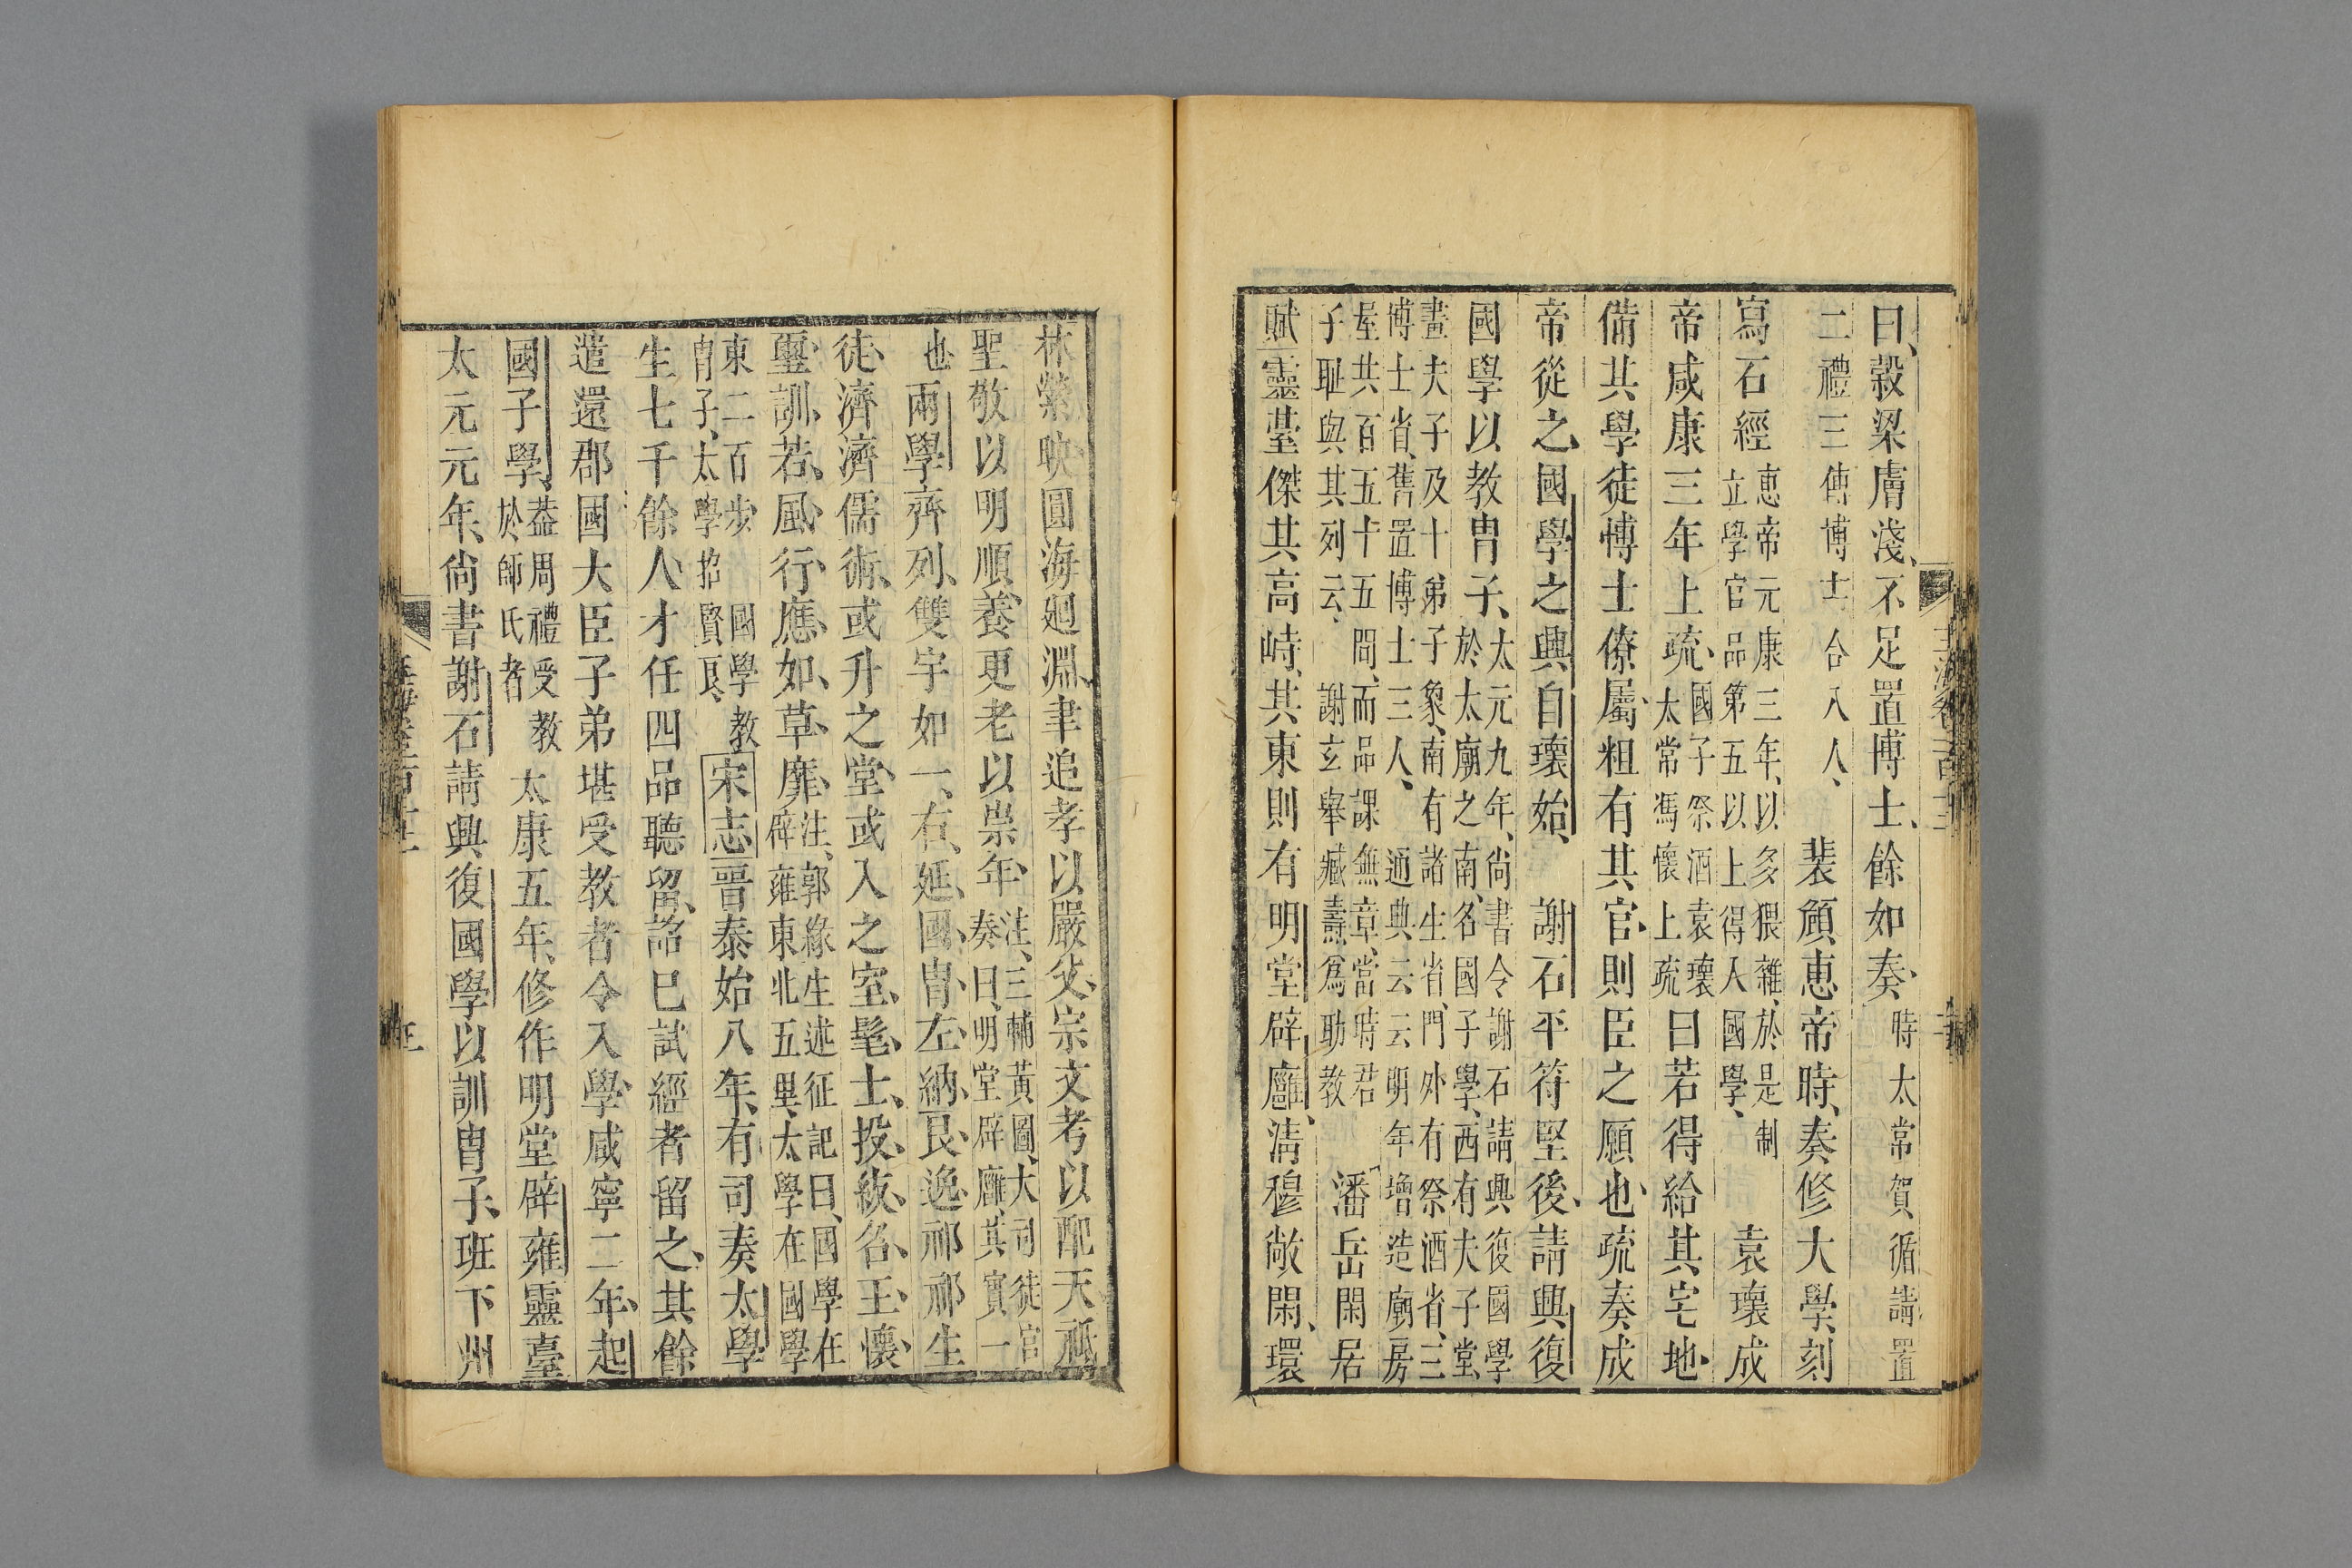 曰、穀梁膚淺、不足置博士、餘如奏、時太常賀循請置
二禮三傳博士合八人、裴頠惠帝時、奏修大學、刻
寫石經惠帝元康三年、以多猥雜、於是制
立學官品第五以上得入國學、袁瓌成
帝咸康三年上疏、國子祭酒袁瓌
太常馮懷上疏曰若得給其宅地、
備其學徒博士僚屬、粗有其官、則臣之願也、疏奏成
帝從之、國學之興自瓌始、謝石平符堅後、請興復
國學以教冑子、太元九年、尚書令謝石請興復國學
於太廟之南、名國子學、西有夫子堂
畫夫子及十弟子象、南有諸生省、門外有祭酒省、三
博士省、舊置博士三人、通典云云明年增造廟房
屋共百五十五間、而品課無章、當時君
子恥與其列云、謝玄舉臧燾爲助教潘岳閑居
賦靈臺傑其高峙、其東則有明堂辟廱、淸穆敞閑、環
林縈映圓海廻淵、聿追孝以嚴父、宗文考以配天祗
聖敬以明順、養更老以崇年、注、三輔黃圖、大司徒宮
奏曰、明堂辟廱、其實一
也兩學齊列、雙宇如一、右、延國冑、左、納良逸祁祁生
徒、濟濟儒術、或升之堂、或入之室、髦士、投紱、名王、懷
璽、訓、若、風、行、應、如、草、靡、注、郭緣生述征記曰、國學在
辟雍東北五里、太學在國學
東二百步國學教
冑子、太學招賢良、宋志晉泰始八年、有司奏太學
生七千餘人、才任四品聽留、詔已試經者留之、其餘
遣還郡國大臣子弟堪受教者令入學、咸寧二年、起
國子學、葢周禮受教
於師氏者太康五年、修作明堂辟雍靈臺
太元元年、尚書謝石請興復國學以訓冑子、班下州